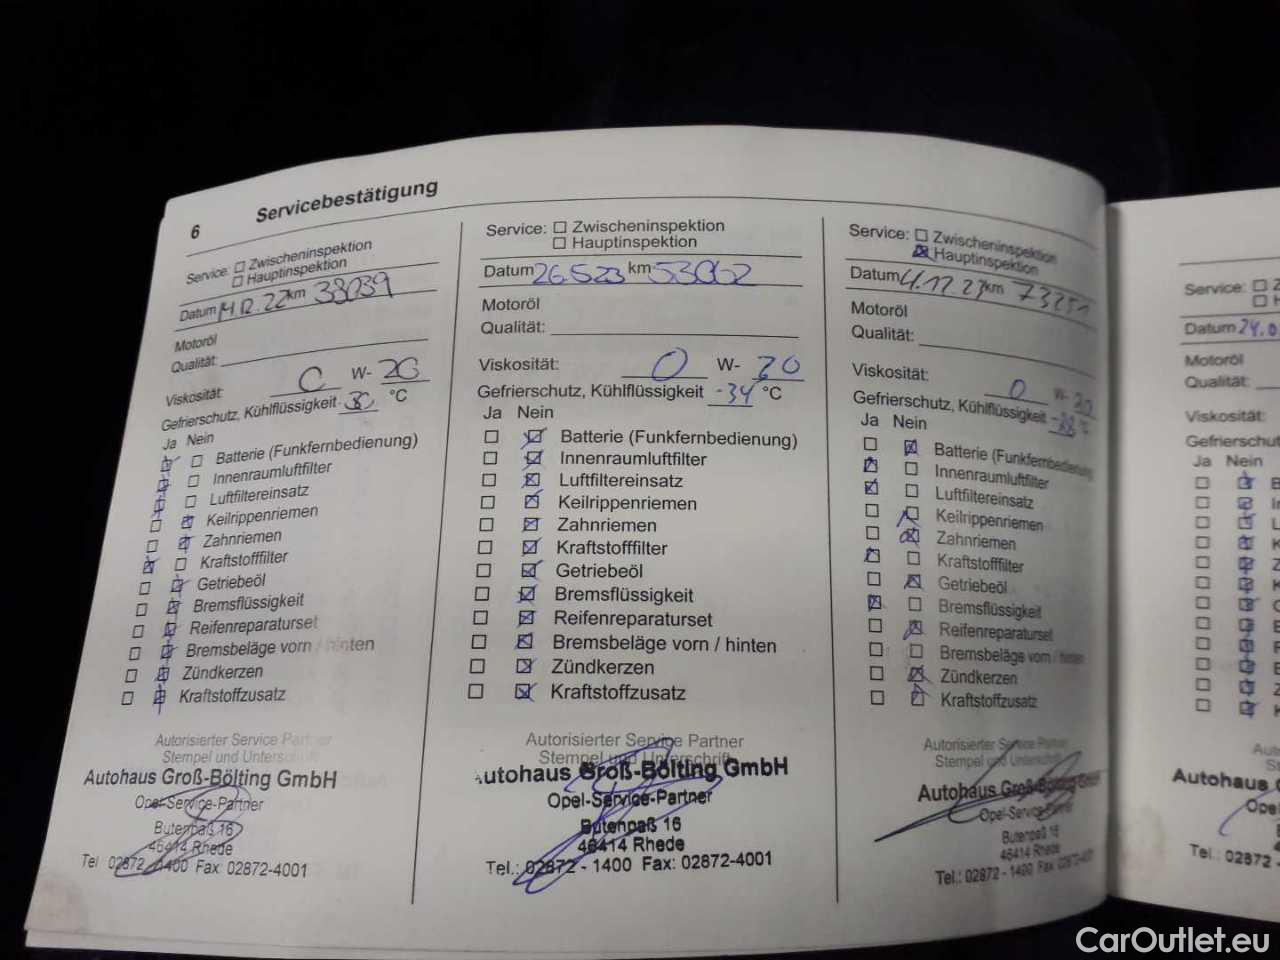 6 Servicebestätigung
Service: Zwischeninspektion
Hauptinspektion
Datum 14.12.22 km 38039
Motoröl
Qualität:
Viskosität: 0 W- 20
Gefrierschutz, Kühlflüssigkeit °C
Ja Nein
Batterie (Funkfernbedienung)
Innenraumluftfilter
Luftfiltereinsatz
Keilrippenriemen
Zahnriemen
Kraftstofffilter
Getriebeöl
Bremsflüssigkeit
Reifenreparaturset
Bremsbeläge vorn / hinten
Zündkerzen
Kraftstoffzusatz
Autorisierter Service Partner
Stempel und Unterschrift
Autohaus Groß-Bölting GmbH
Opel-Service-Partner
Butenpaß 16
46414 Rhede
Tel 02872 - 1400 Fax: 02872-4001
Service: Zwischeninspektion
Hauptinspektion
Datum 26.5.23 km 53062
Motoröl
Qualität:
Viskosität: 0 W- 20
Gefrierschutz, Kühlflüssigkeit -34 °C
Ja Nein
Batterie (Funkfernbedienung)
Innenraumluftfilter
Luftfiltereinsatz
Keilrippenriemen
Zahnriemen
Kraftstofffilter
Getriebeöl
Bremsflüssigkeit
Reifenreparaturset
Bremsbeläge vorn / hinten
Zündkerzen
Kraftstoffzusatz
Autorisierter Service Partner
Stempel und Unterschrift
Autohaus Groß-Bölting GmbH
Opel-Service-Partner
Butenpaß 16
46414 Rhede
Tel.: 02872 - 1400 Fax: 02872-4001
Service: Zwischeninspektion
Hauptinspektion
Datum 4.12.23 km 73251
Motoröl
Qualität:
Viskosität: 0 W- 20
Gefrierschutz, Kühlflüssigkeit -38 °C
Ja Nein
Batterie (Funkfernbedienung
Innenraumluftfilter
Luftfiltereinsatz
Keilrippenriemen
Zahnriemen
Kraftstofffilter
Getriebeöl
Bremsflüssigkeit
Reifenreparaturset
Bremsbeläge vorn / hinten
Zündkerzen
Kraftstoffzusatz
Autorisierter Service Partner
Stempel und Unterschrift
Autohaus Groß-Bölting GmbH
Opel-Service-Partner
Butenpaß 16
46414 Rhede
Tel.: 02872 - 1400 Fax 02872-40
Service: Z
H
Datum 24.0
Motoröl
Qualität:
Viskosität:
Gefrierschut
Ja Nein
B
I
L
K
Z
K
G
B
R
B
Z
K
Au
S
Autohaus
Ope
4
Tel.: 02872
CarOutlet.eu